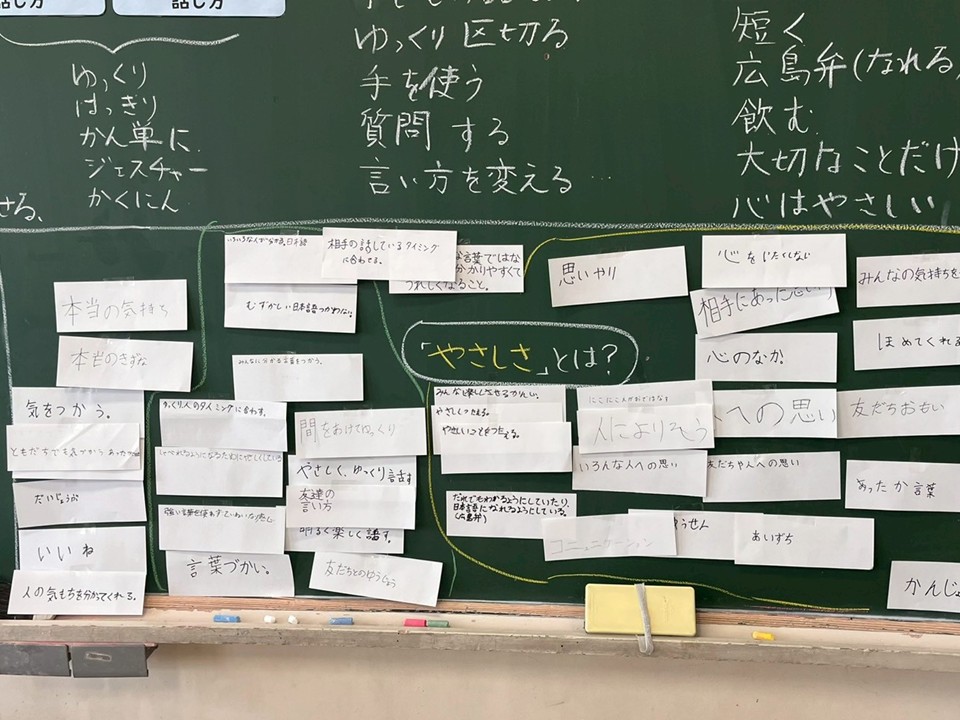 話し方
話し方
ゆっくり
はっきり
かん単に
ジェスチャー
かくにん
ゆっくり区切る
手を使う
質問する
言い方を変える…
短く
広島弁(なれる
飲む
大切なことだけ
心はやさしい
せる、
「やさしさ」とは?
本当の気持ち
本当のきずな
気をつかう。
ともだちでも気づかう
だいじょうぶ
いいね
人の気もちを分かってくれる。
いろいろな人が分かる、日本語
相手の話しているタイミング
に合わせる。
むずかしい日本語つかわない。
な言葉ではな
分かりやすくて
うれしくなること。
みんなに分かる言葉をつかう。
ゆっくり人のタイミングに合わす。
間をあけてゆっくり
やさしく、ゆっくり話す
友達の
言い方
明るく楽しく話す。
言葉づかい。
友だちとのゆうじょう
思いやり
心をいたくしない
相手にあった思い
みんなの気持ちを
心のなか
ほめてくれる
やさしくつたえる。
やさしいことをつたえる。
人によりそう
人への思い
友だちおもい
いろんな人への思い
友だちや人への思い
あったか言葉
だれでもわかるようにしていたり
日本語になれるようにしている。
(広島弁)
コミュニケーション
うせん
あいずち
かんじょ